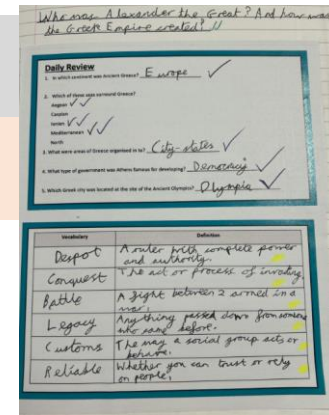 Who was Alexander the Great? And how was
the Greek Empire created?
Daily Review
1. In which continent was Ancient Greece? Europe
2. Which of these seas surround Greece?
Aegean
Caspian
Ionian
Mediterranean
North
3. What were areas of Greece organised in to? City-states
4. What type of government was Athens famous for developing? Democracy
5. Which Greek city was located at the site of the Ancient Olympics? Olympia
Vocabulary Definition
Despot A ruler with complete power
and authority.
Conquest The act or process of invading.
Battle A fight between 2 armed in a
war.
Legacy Anything passed down from someone
who came before.
Customs The way a social group acts or
behave.
Reliable Whether you can trust or rely
on people.